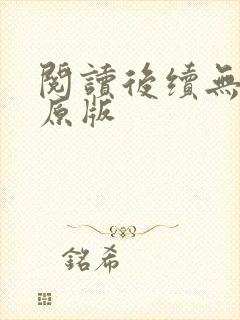 閱讀後續無
原版
銘希